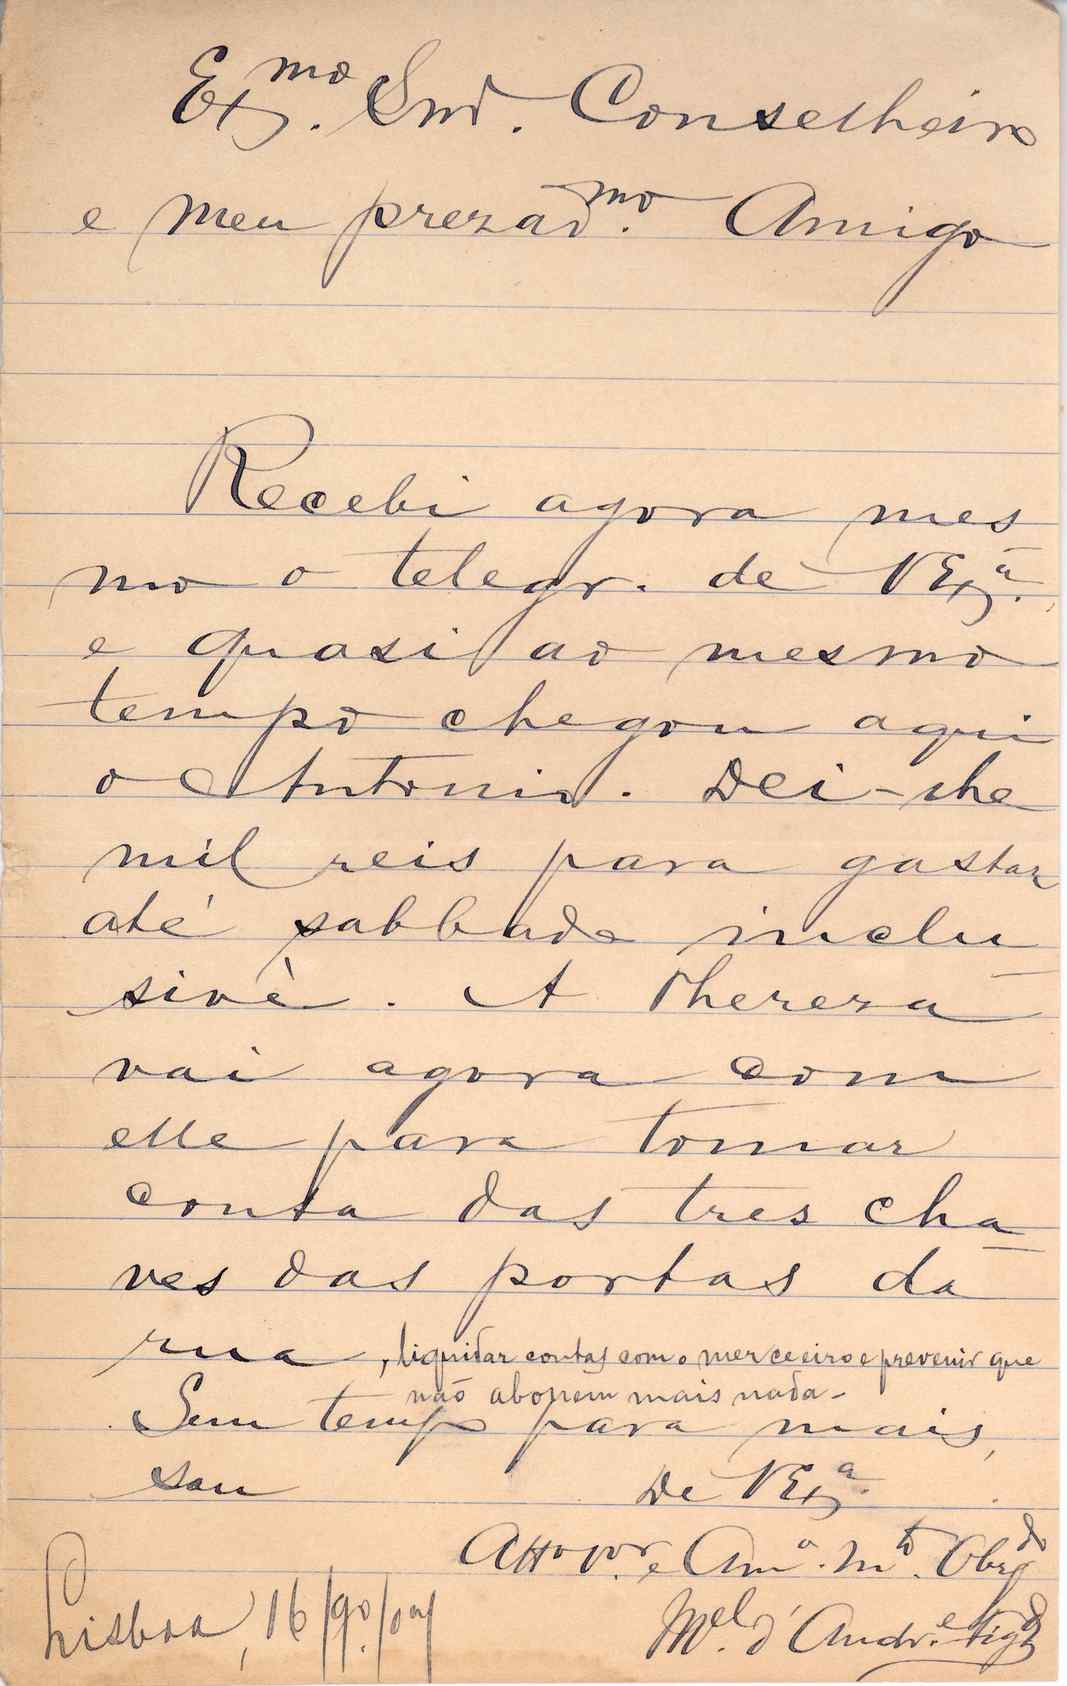 Exmo. Snr. Conselheiro
e meu prezadmo. Amigo
Recebi agora mes
mo o telegr. de VExa.
e quasi ao mesmo
tempo chegou aqui
o Antonio. Dei-lhe
mil reis para gastar
até sabbado inclu
sivè. A Thereza
vai agora com
elle para tomar
conta das tres cha-
ves das portas da
rua, liquidar contas com o merceeiro e prevenir que
não abonem mais nada-
Sem tempo para mais,
sou De VExa.
Atto vor. e Amo. Mto. Obrgdo
Mel. d'Andre.
Lisboa, 16/9o/